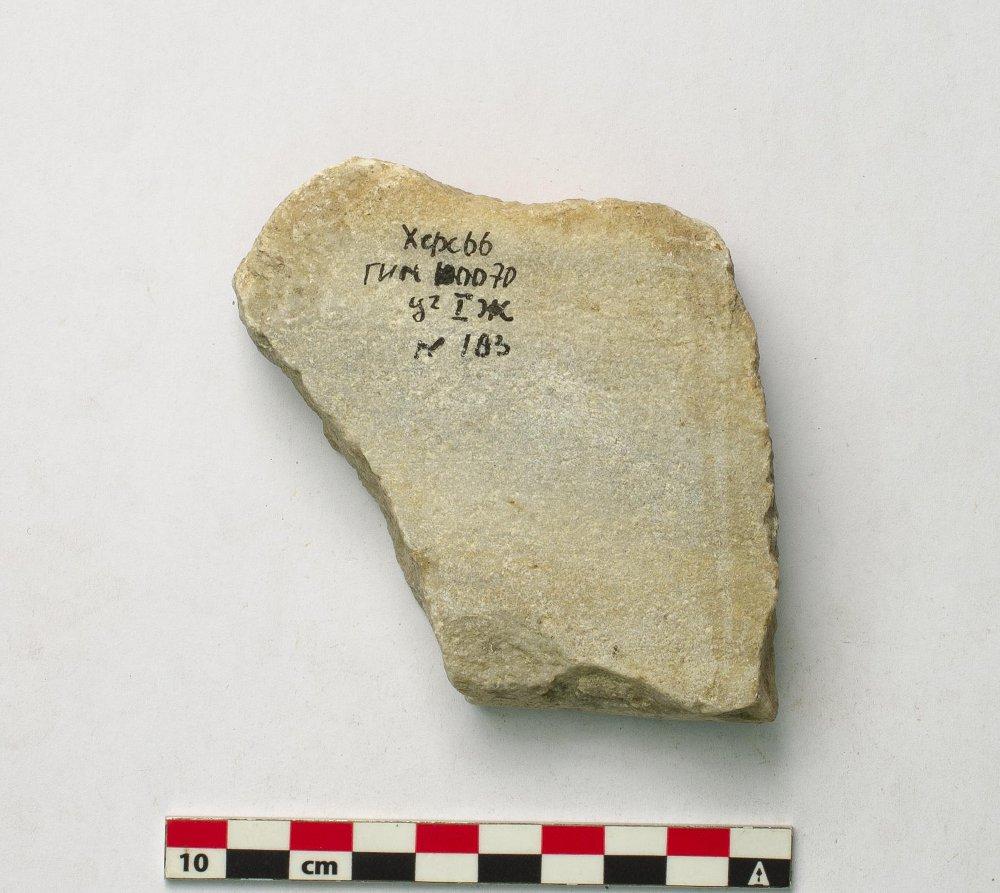 Херс66
ГИМ 100070
уг I Ж
№ 183
10 cm